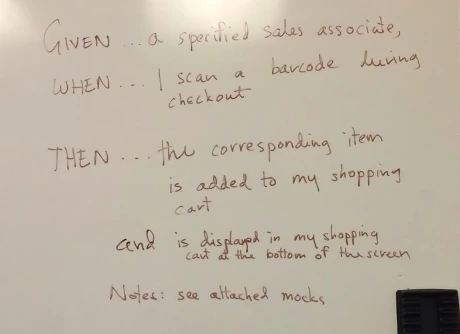 GIVEN ... a specified sales associate,
WHEN ... I scan a barcode during
checkout
THEN ... the corresponding item
is added to my shopping
cart
and is displayed in my shopping
cart at the bottom of the screen
Notes: see attached mocks